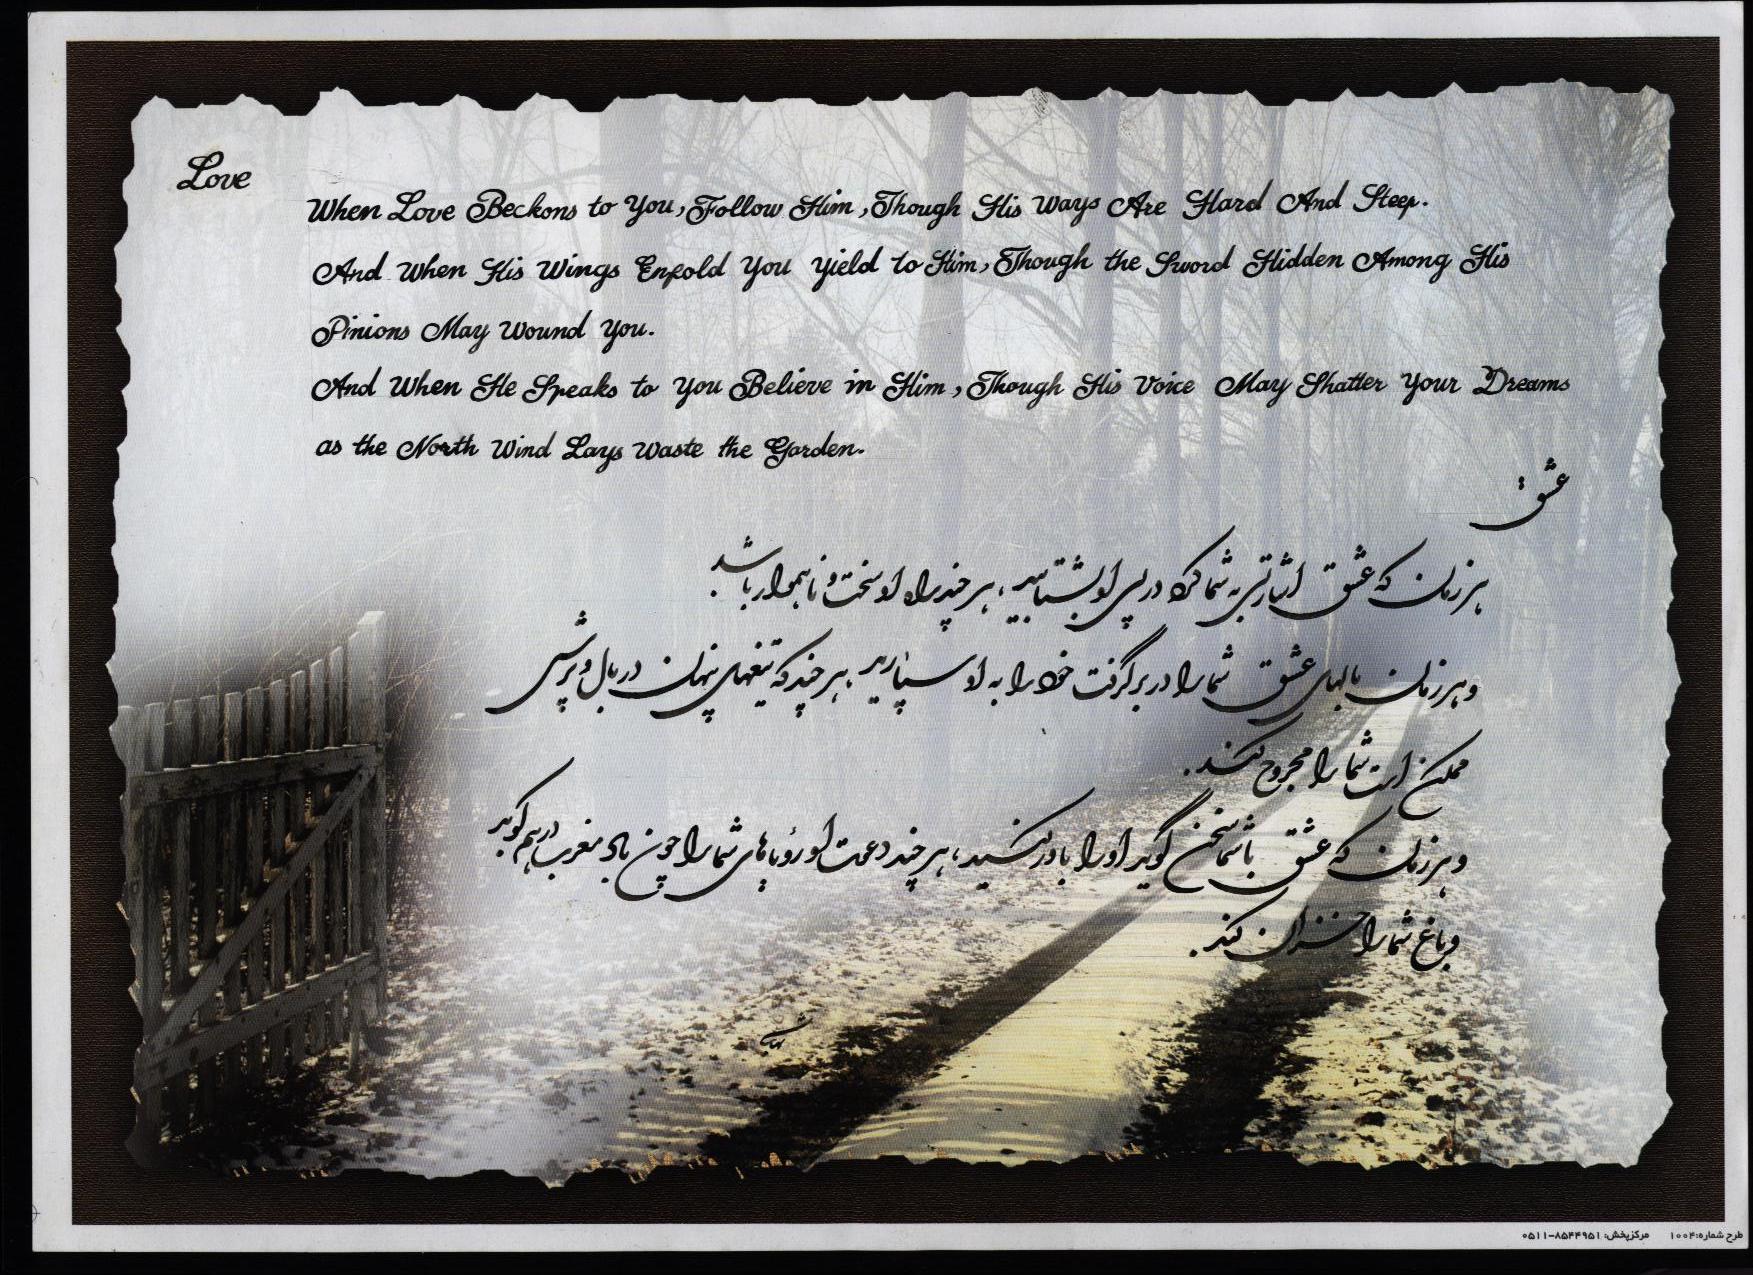 Love
When Love Beckons to You, Follow Him, Though His Ways Are Hard And Steep.
And When His Wings Enfold You Yield to Him, Though the Sword Hidden Among His
Pinions May Wound You.
And When He Speaks to You Believe in Him, Though His Voice May Shatter Your Dreams
as the North Wind Lays Waste the Garden.
عشق:
هر زمان که عشق اشارتی به شما کرد در پی او بشتابید، هر چند راه او سخت و ناهموار باشد.
و هر زمان بالهای عشق شما را در بر گرفت خود را به او بسپارید، هر چند که تیغهای پنهان در بال و پرش
ممکن است شما را مجروح کند.
و هر زمان که عشق با شما سخن گوید او را باور کنید، هر چند دعوت او رؤیاهای شما را چون باد مغرب در هم کوبد
و باغ شما را خزان کند.
طرح شماره: ۱۰۰۴ مرکز پخش: ۸۵۴۴۹۵۱-۰۵۱۱